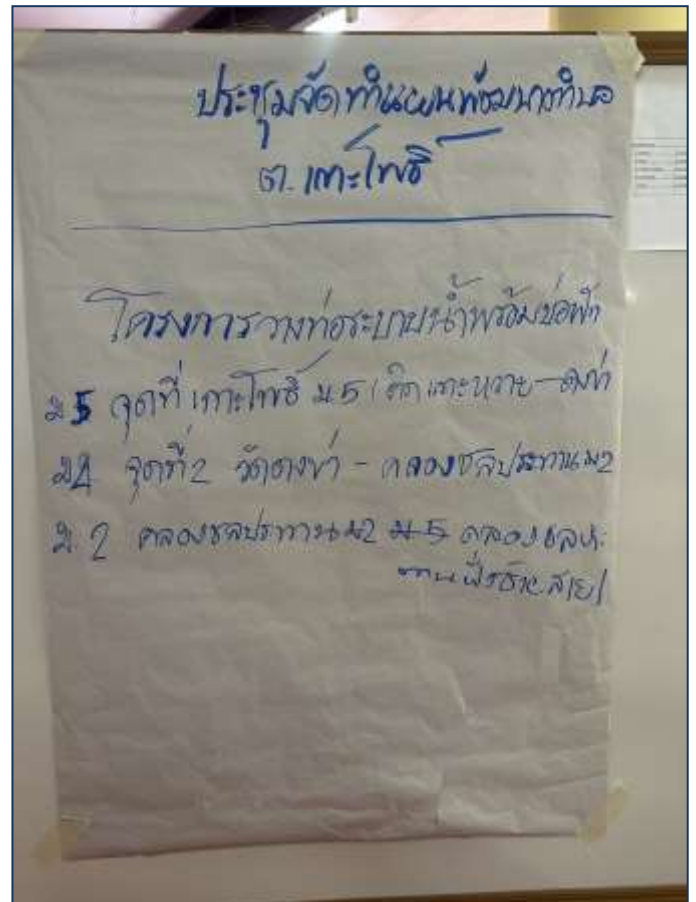 ประชุมจัดทำแผนพัฒนาตำบล
ต.เกาะโพธิ์
โครงการวางท่อระบายน้ำพร้อมบ่อพัก
ม.5 จุดที่ เกาะโพธิ์ ม.5 เกาะหวาย - ดงข่า
ม.4 จุดที่ 2 วัดดงข่า - คลองชลประทาน ม.2
ม.2 คลองชลประทาน ม.2 ม.5 คลองชลประ
ทานฝั่งซ้าย สาย 1